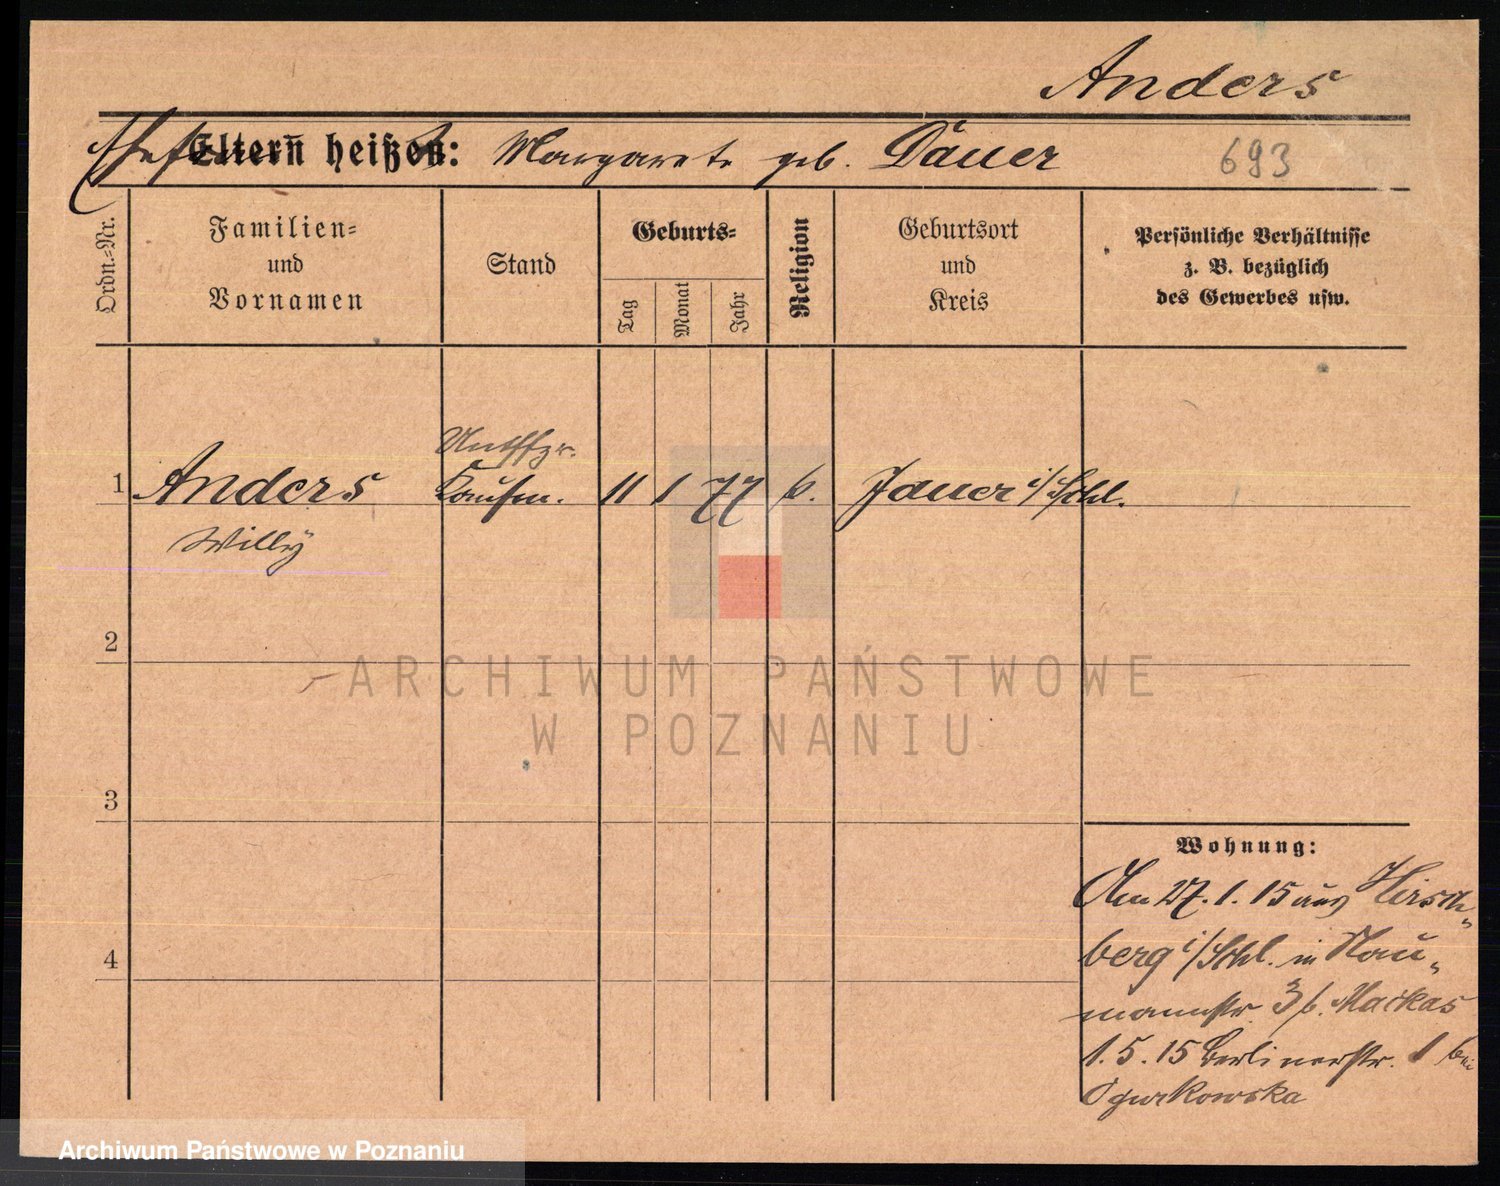 Anders
Eltern heißen: Margarete geb. Däuer 693
Ordn.-Nr.
Familien-
und
Vornamen
Stand
Geburts-
Tag
Monat
Jahr
Religion
Geburtsort
und
Kreis
Persönliche Verhältnisse
z. B. bezüglich
des Gewerbes usw.
Untffzr.
1 Anders Kaufm. 11 1 77 k. Jauer i/Schl.
Willy
2
ARCHIWUM PAŃSTWOWE
W POZNANIU
3
Wohnung:
Am 27.1.15 aus Hirsch-
4
berg i/Schl. in Nau-
mannstr. 3 b. Maikas
1.5.15 Berlinerstr. 1 bei
Ogurkowska
Archiwum Państwowe w Poznaniu